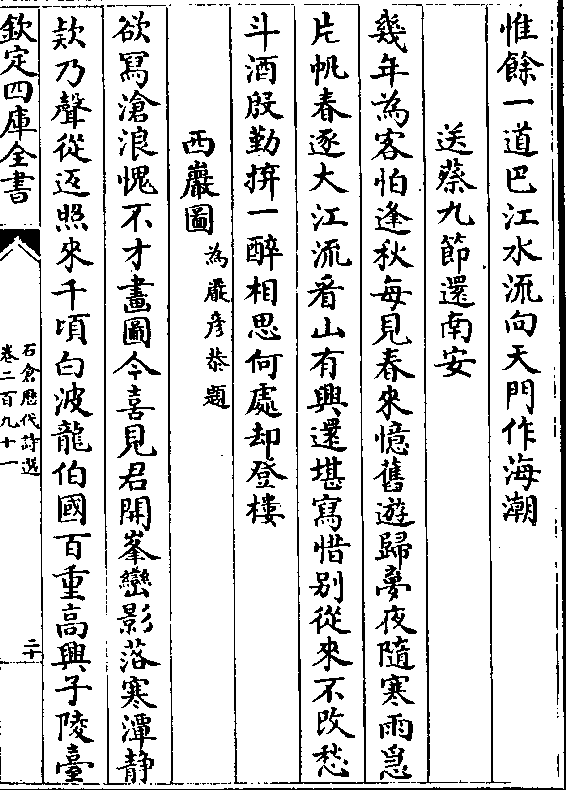 惟餘一道巴江水流向天門作海潮
送蔡九節還南安
幾年為客怕逢秋每見春來憶舊遊歸夢夜隨寒雨急
片帆春逐大江流看山有興還堪寫惜别從來不改愁
斗酒殷勤拚一醉相思何處却登樓
西巖圖為嚴彦恭題
欲冩滄浪愧不才畫圖今喜見君開峯巒影落寒潭静
欵乃聲從返照來千頃白波龍伯國百重高興子陵臺
欽定四庫全書
石倉歴代詩選
卷二百九十一
二十